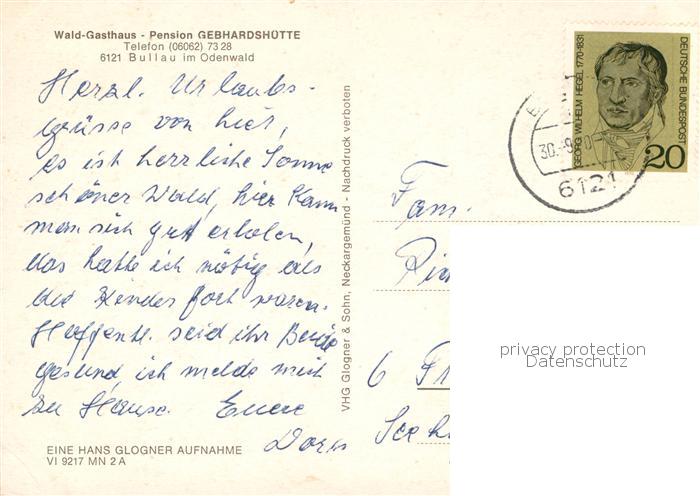 Wald-Gasthaus - Pension GEBHARDSHÜTTE
Telefon (06062) 73 28
6121 Bullau im Odenwald
Herzl. Urlaubs-
grüsse von hier,
es ist herrliche Sonne
schöner Wald, hier kann
man sich gut erholen,
das hatte ich nötig als
die Kinder fort waren.
Hoffentl. seid ihr Beide
gesund, ich melde mich
zu Hause. Euere
Doris
EINE HANS GLOGNER AUFNAHME
VI 9217 MN 2 A
VHG Glogner & Sohn, Neckargemünd - Nachdruck verboten
GEORG WILHELM HEGEL 1770-1831
DEUTSCHE BUNDESPOST
20
30.-9.
6121
Fam.
6
privacy protection
Datenschutz